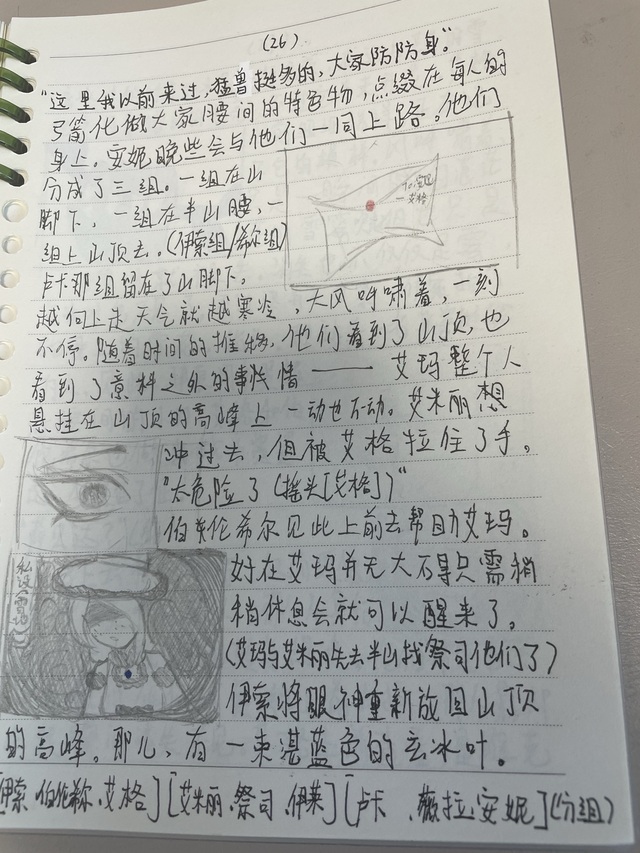 (26)
"这里我以前来过,猛兽挺多的,大家防防身。"
弓箭化做大家腰间的特色物,点缀在每人的
身上。安妮晚些会与他们一同上路。他们
分成了三组。一组在山
脚下,一组在半山腰,一
组上山顶去。(伊索组/希尔组)
卢卡那组留在了山脚下。
一艾格
越向上走天气就越寒冷,大风呼啸着,一刻
不停。随着时间的推移,他们看到了山顶,也
看到了意料之外的事情——艾玛整个人
悬挂在山顶的高峰上一动也不动。艾米丽想
冲过去,但被艾格拉住了手。
"太危险了(摇头[艾格])"
伯莱伦希尔见此上前去帮助艾玛。
好在艾玛并无大碍只需稍
稍休息会就可以醒来了。
(艾玛与艾米丽先去半山找祭司他们了)
伊索将眼神重新放回山顶
的高峰。那儿,有一束湛蓝色的玄冰叶。
私设(雪地)
[伊索.伯伦希尔.艾格][艾米丽.祭司.伊莱][卢卡.薇拉.安妮](分组)